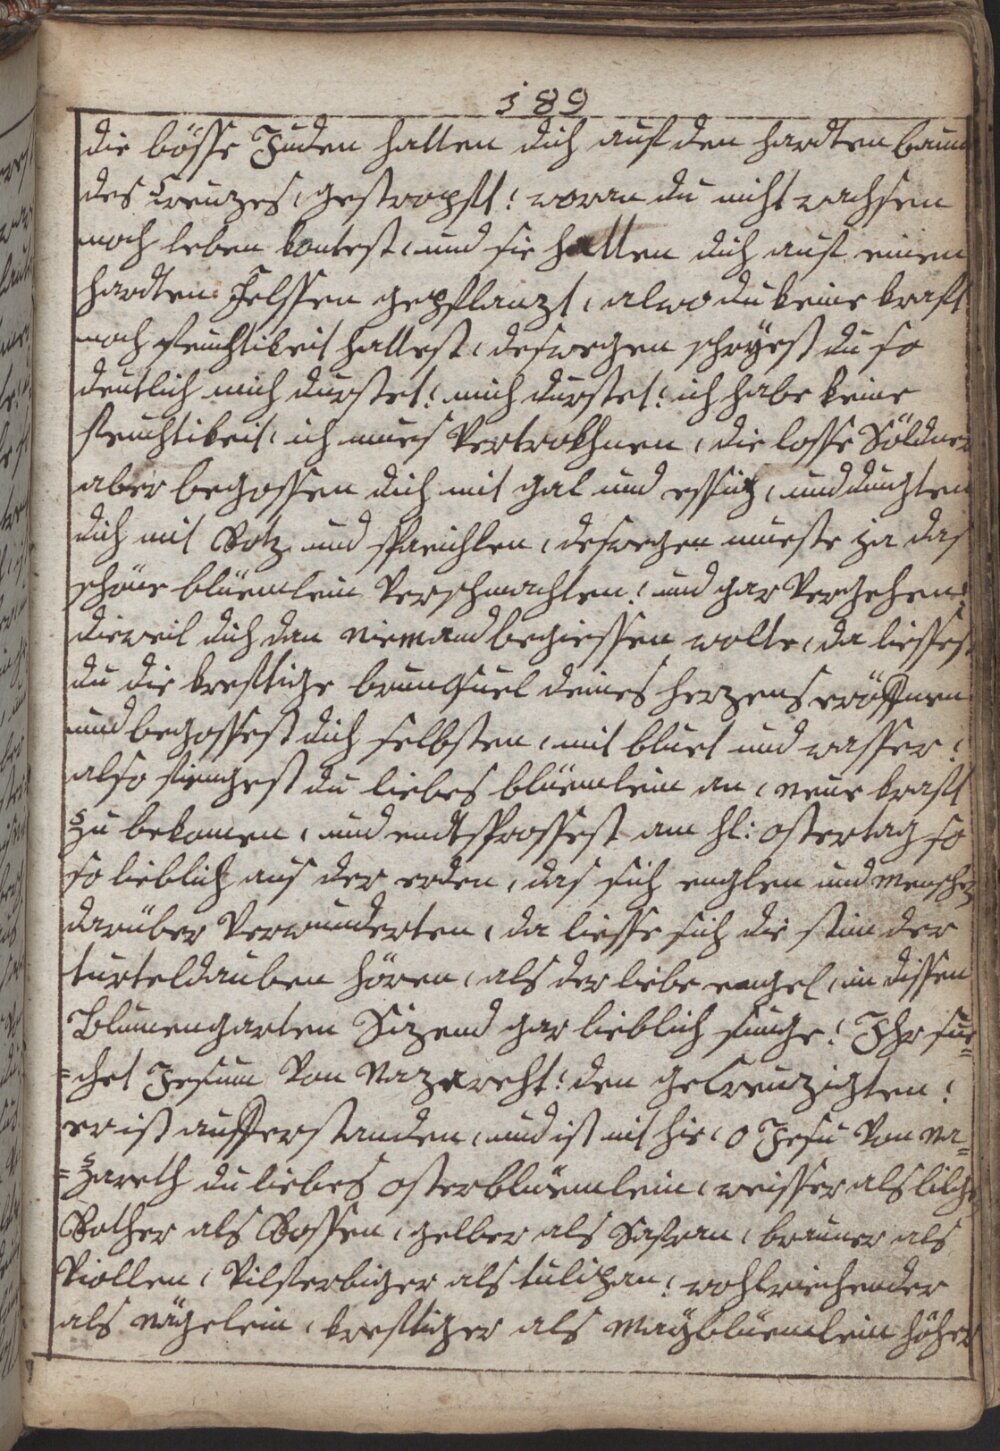 189
die bösse Juden hatten dich auf den hardten baum
des Creuzes, gestropft! woran du nicht wachsen
noch leben kontest, und sie hatten dich auf einen
hardten felssen gepflanzt, alwo du keine kraft
noch feuchtikeit hattest, deswegen schryest du so
deutlich mich dürstet! mich dürstet! ich habe keine
feuchtikeit, ich mues vertrokhnen, die losse Söldner
aber begossen dich mit gal und essich, und dungten
dich mit Rotz und speichlen, deswegen mueste ja das
schöne blüemlein verschmachten! und gar vergehen!
dieweil dich dan niemand begiessen wolte, da liessest
du die kreftige brunquel deines herzens eröffnen
und begossest dich selbsten, mit bluet und wasser!
also fiengest du liebes blüemlein an, neue kraft
zu bekomen, und endtsprossest am hl: ostertag so
so lieblich aus der erden, das sich englen und menschen
darüber verwunderten, da liesse sich die stim der
turteldauben hören, als der liebe engel, in dissen
Blumengarten Sizend gar lieblich sunge! Ihr sue=
=chet Jesum von Nazareht! den geCreuzigten!
er ist aufferstanden, und ist nit hie, o Jesu von Na=
=zareth du liebes osterblüemlein, weisser als lilge
Rother als Rossen, gelber als Safran, brauner als
Viollen, vilfferbiger als tulipan! wohlriechender
als nägelein, kreftiger als Mayblüemlein höher